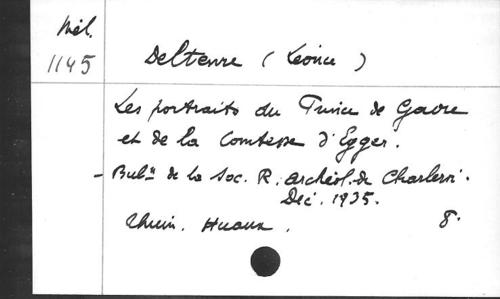 Mél.
1145
Deltenre (Léonce)
Les portraits du Prince de Gavre
et de la Comtesse d'Egger.
- Bulⁿ de la Soc. R. archéol. de Charleroi.
Déc. 1935.
Thuin. Huaux. 8°